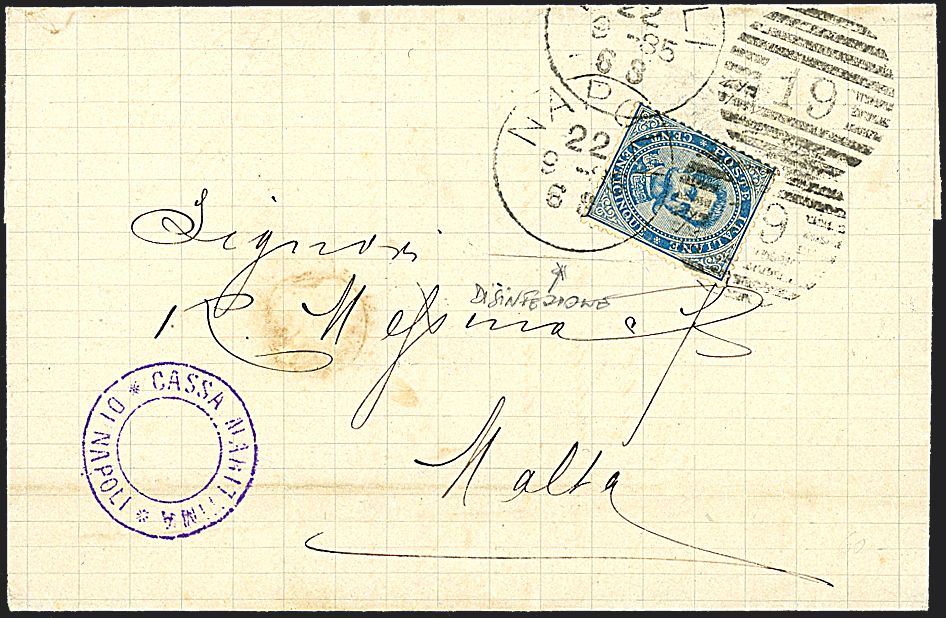 22
9 - 85
6 8
19
NAPOLI
22
9 -
6 8
9
POSTE ITALIANE
CENT. VENTICINQUE
Signori
R. Messina &
DISINFEZIONE
Malta
* CASSA MARITTIMA * DI NAPOLI